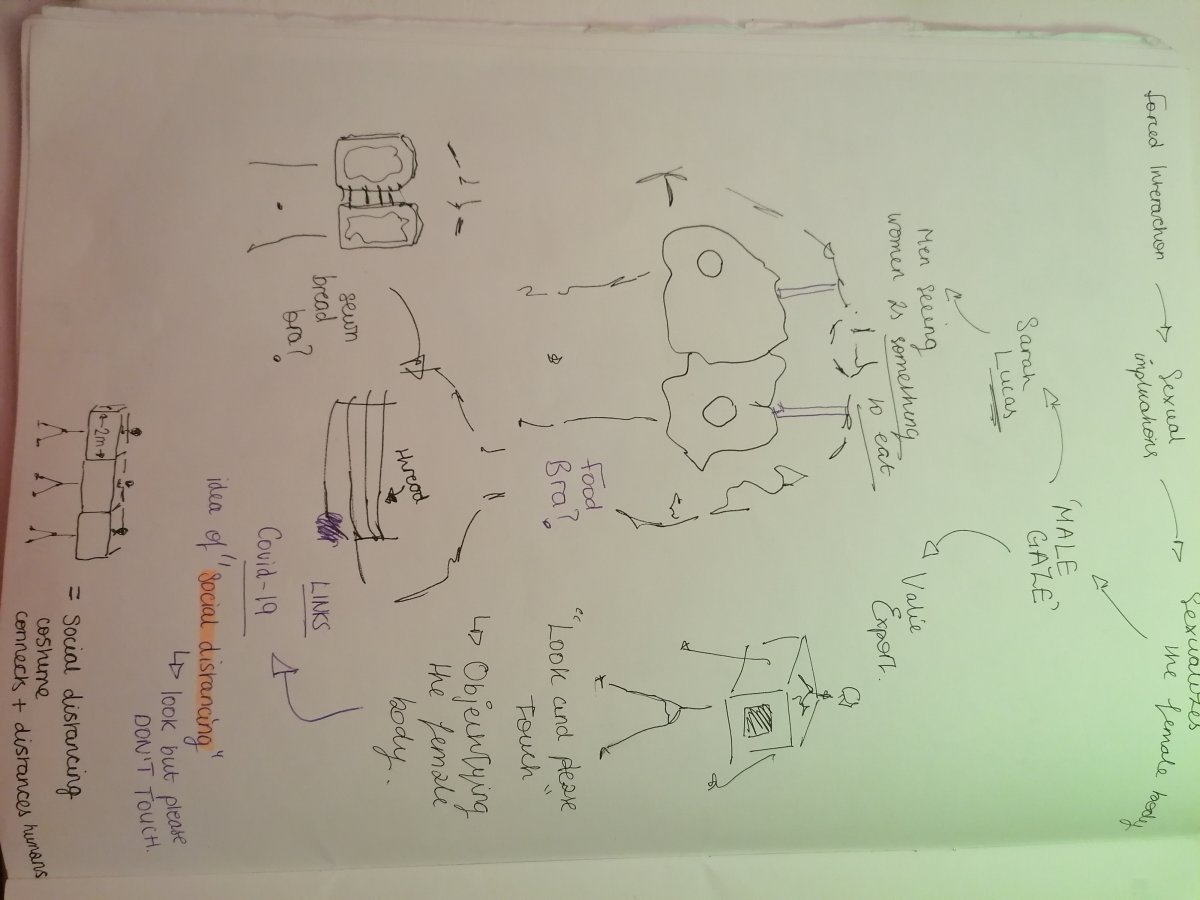 forced Interaction → Sexual implications → Sexualizes the female body
'MALE
GAZE'
Sarah
Lucas
Men seeing
women as something to eat
Valie
Export.
food
Bra?
"Look and please
Touch"
↳ Objectifying
the female
body.
sewn
bread
bra?
thread
LINKS
Covid-19
idea of "social distancing"
↳ look but please
DON'T TOUCH.
2m
= Social distancing
costume
connects + distances humans